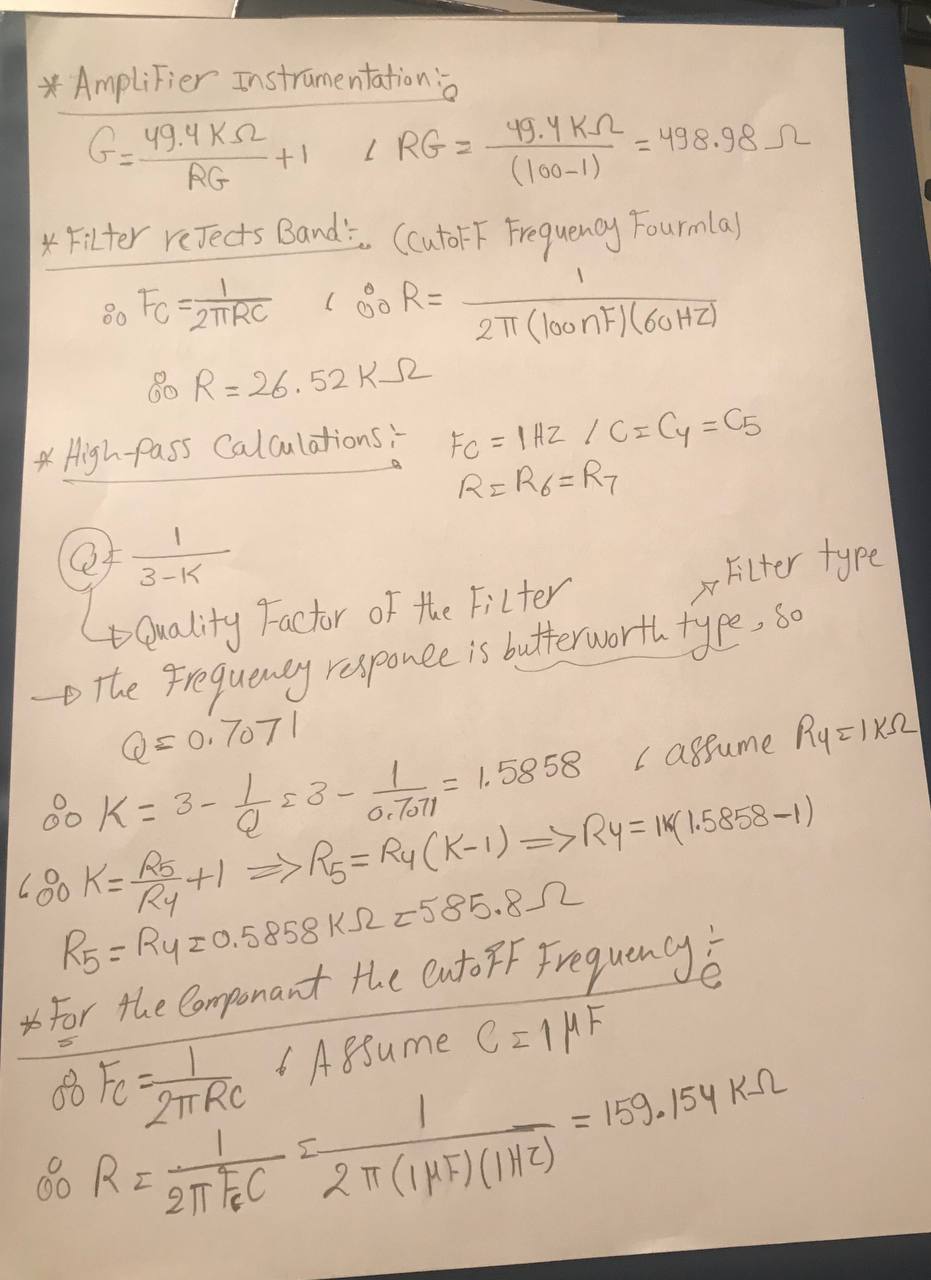 * Amplifier Instrumentation:-
G = 49.4 KΩ / RG + 1 , RG = 49.4 KΩ / (100-1) = 498.98 Ω
* Filter rejects Band:- (Cutoff Frequency Fourmla)
∴ Fc = 1 / 2πRC , ∴ R = 1 / 2π(100nF)(60HZ)
∴ R = 26.52 KΩ
* High-pass Calculations:- Fc = 1HZ / C = C4 = C5
R = R6 = R7
Q = 1 / 3-K
Filter type
↳ Quality Factor of the Filter
→ The Frequency responce is butterworth type, so
Q = 0.7071
∴ K = 3 - 1/Q = 3 - 1/0.7071 = 1.5858 , assume R4 = 1KΩ
, ∴ K = R5/R4 + 1 => R5 = R4(K-1) => R4 = 1K(1.5858-1)
R5 = R4 = 0.5858 KΩ = 585.8 Ω
* For the Componant the cutoff Frequency:-
∴ Fc = 1 / 2πRC , Assume C = 1μF
∴ R = 1 / 2πFcC = 1 / 2π(1μF)(1HZ) = 159.154 KΩ